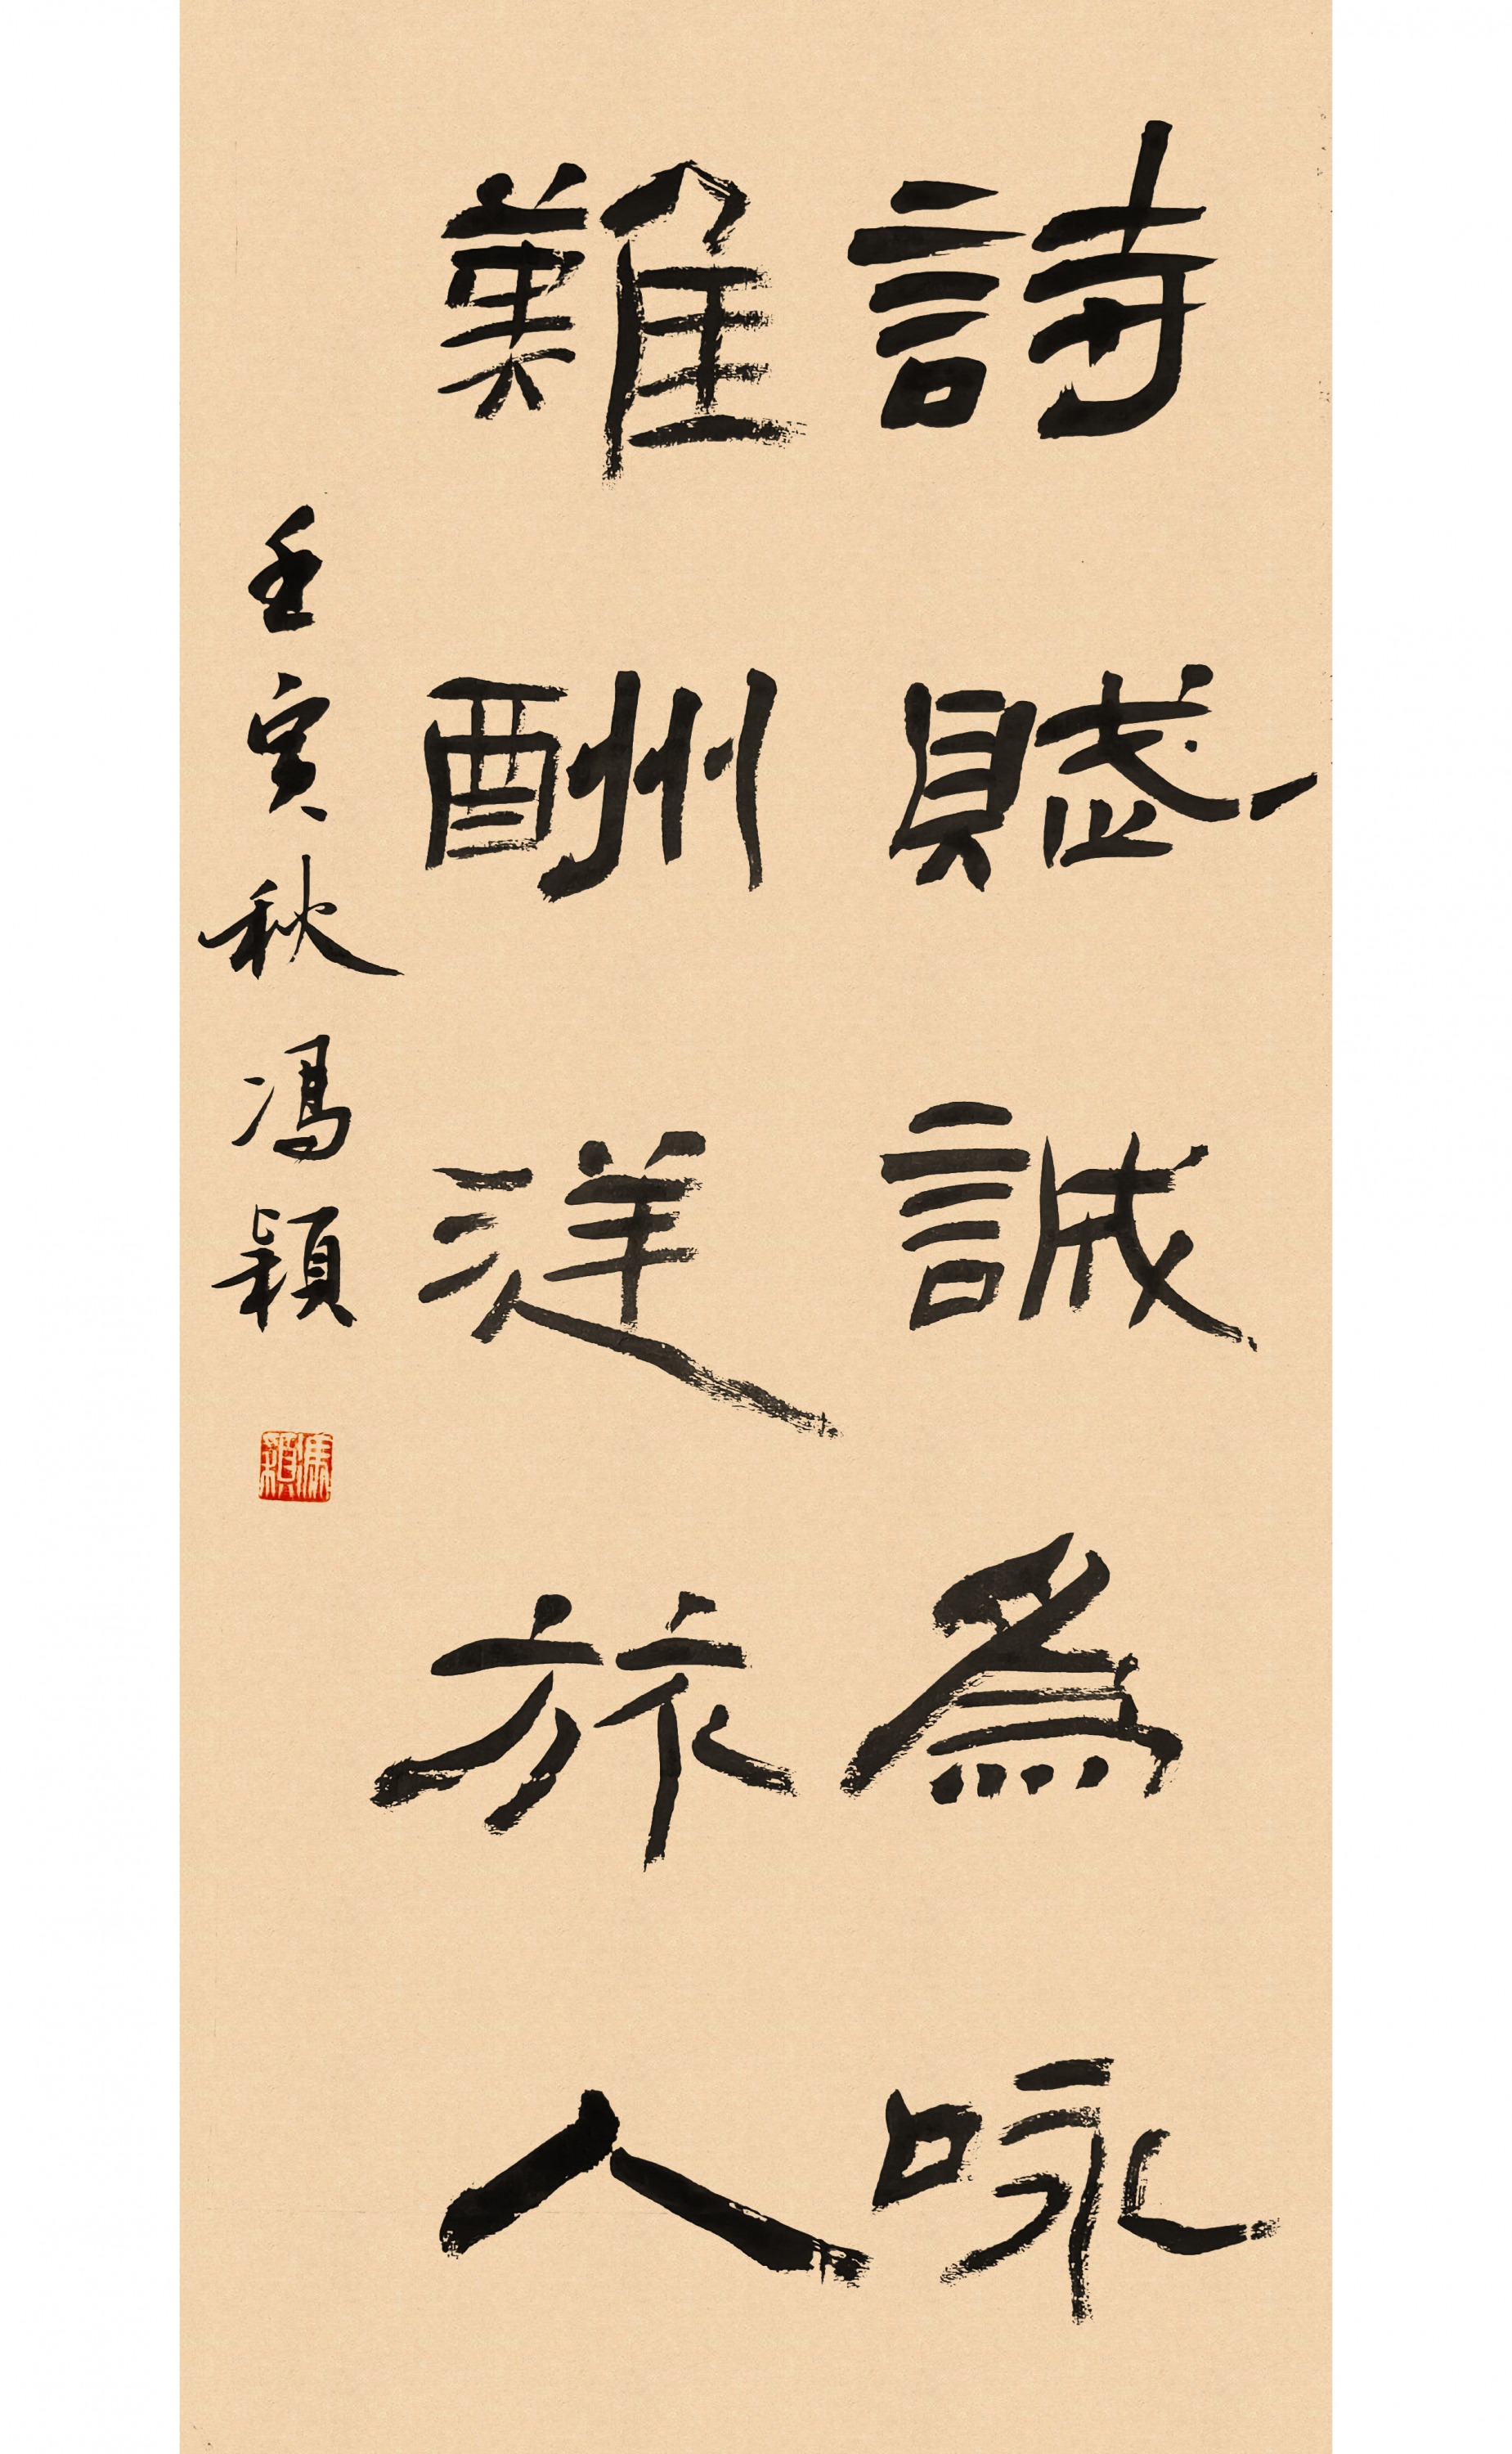 詩賦誠爲咏
難酬逆旅人
壬寅秋馮穎
馮穎